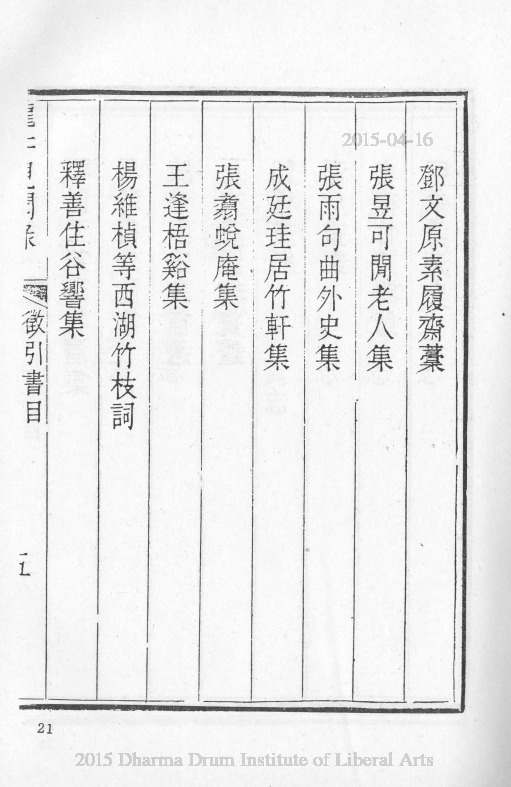 2015-04-16
鄧文原素履齋藁
張昱可閒老人集
張雨句曲外史集
成廷珪居竹軒集
張翥蛻庵集
王逢梧谿集
楊維楨等西湖竹枝詞
釋善住谷響集
徵引書目
五
21
2015 Dharma Drum Institute of Liberal Arts